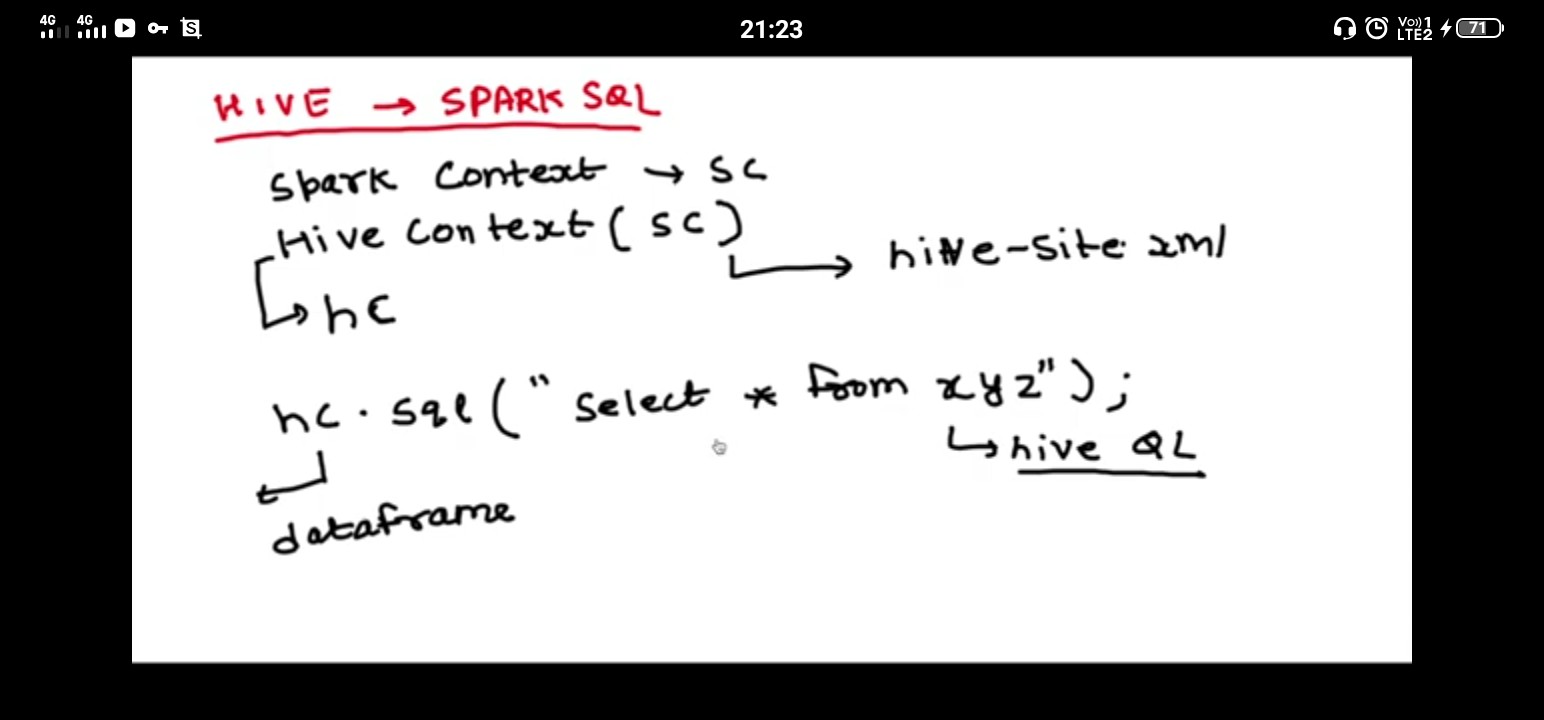 4G 4G 21:23 Vo)) 1 LTE2 71
HIVE → SPARK SQL
Spark Context → SC
Hive Context ( SC )
→ hive-site.xml
→ hc
hc.sql(" select * from xyz");
→ hive QL
dataframe